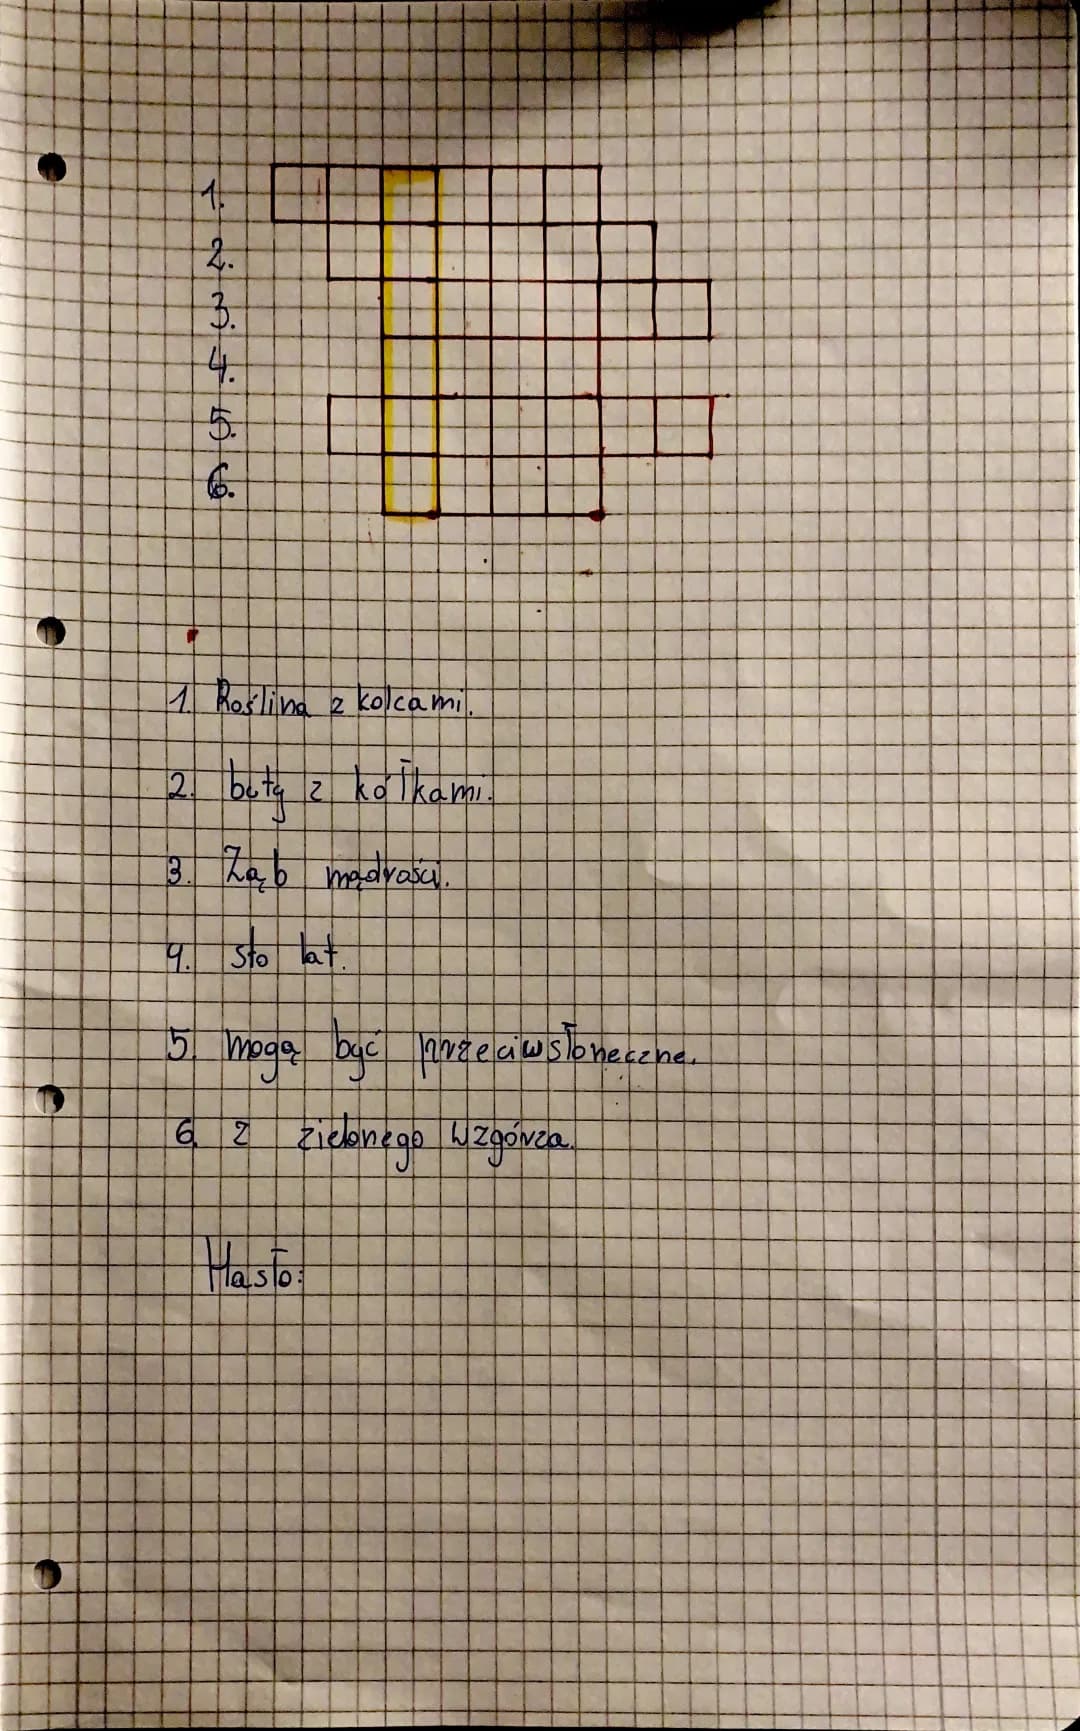 1.
2.
3.
4.
5.
6.
1. Roślina z kolcami.
2. buty z kółkami.
3. Ząb mądrości.
4. sto lat.
5. mogą być przeciwsłoneczne.
6. z zielonego wzgórza.
Hasło: